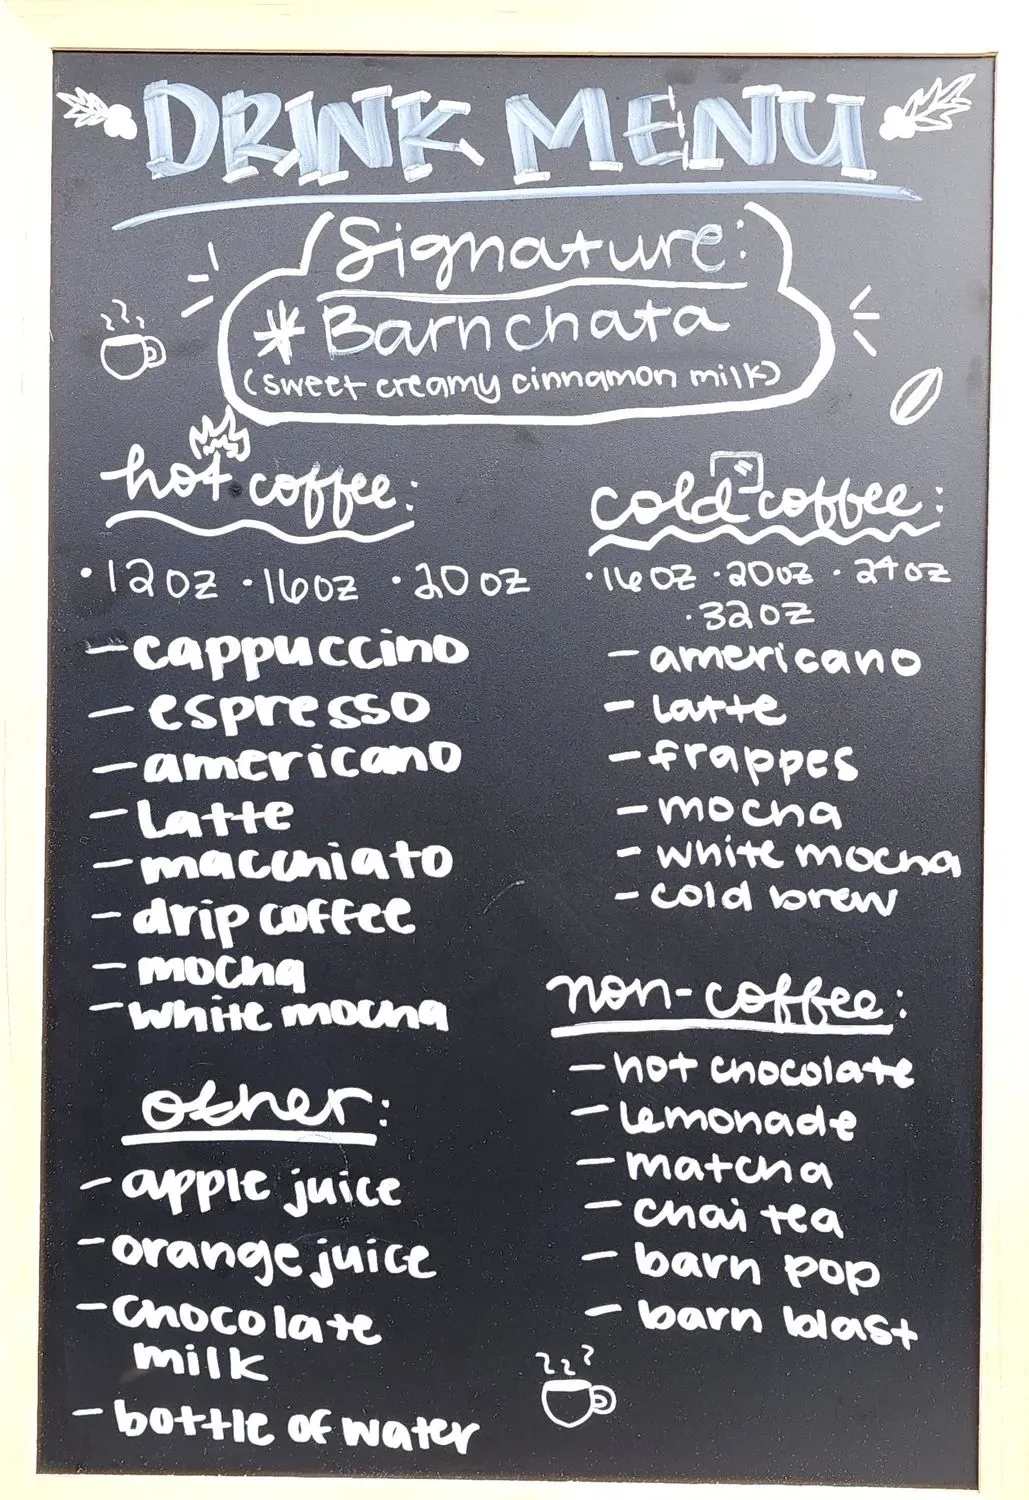 DRINK MENU
Signature:
* Barnchata
(sweet creamy cinnamon milk)
hot coffee:
• 12oz • 16oz • 20oz
– cappuccino
– espresso
– americano
– Latte
– macchiato
– drip coffee
– mocha
– white mocha
other:
– apple juice
– orange juice
– chocolate
milk
– bottle of water
cold coffee:
• 16oz • 20oz • 24oz
• 32oz
– americano
– latte
– frappes
– mocha
– white mocha
– cold brew
non-coffee:
– hot chocolate
– lemonade
– matcha
– chai tea
– barn pop
– barn blast